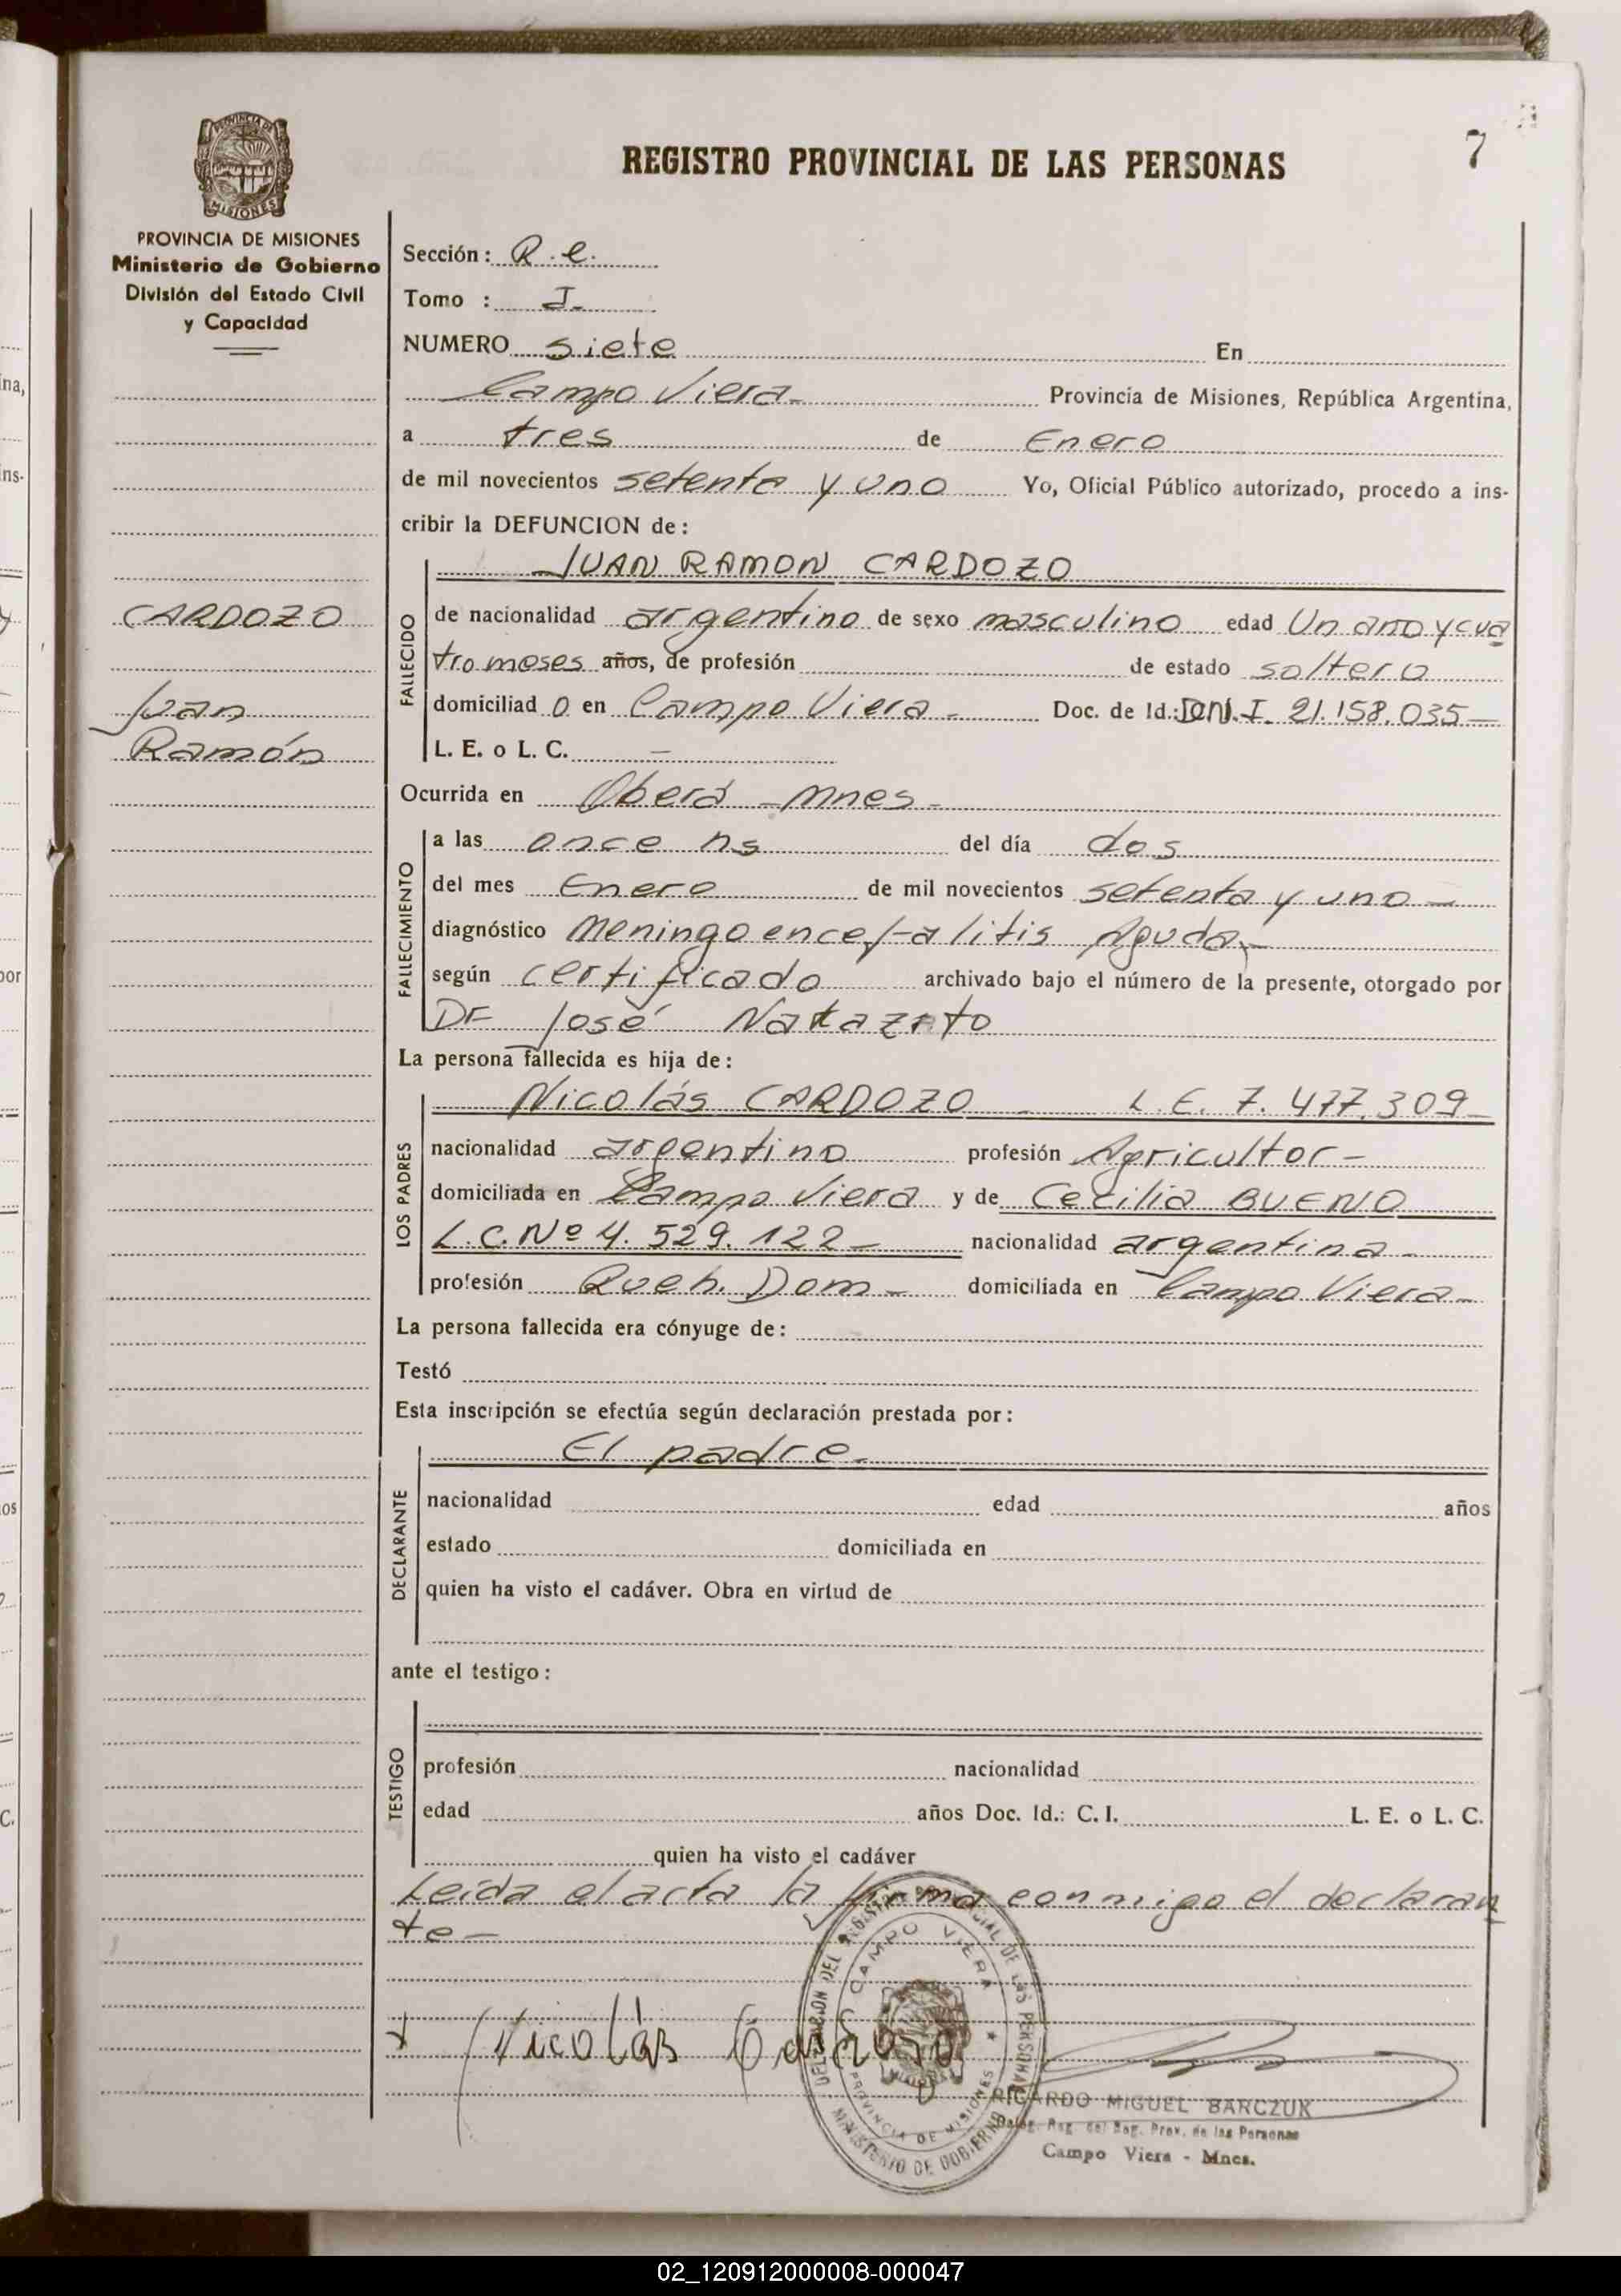 REGISTRO PROVINCIAL DE LAS PERSONAS
7
PROVINCIA DE
MISIONES
PROVINCIA DE MISIONES
Ministerio de Gobierno
División del Estado Civil
y Capacidad
CARDOZO
Juan
Ramón
Sección: R.e.
Tomo : I-
NUMERO siete En
Campo Viera- Provincia de Misiones, República Argentina,
a tres de Enero
de mil novecientos setenta y uno Yo, Oficial Público autorizado, procedo a ins-
cribir la DEFUNCION de:
FALLECIDO
JUAN RAMON CARDOZO
de nacionalidad argentino de sexo masculino edad Un año y cua
tro meses años, de profesión de estado soltero
domiciliad o en Campo Viera - Doc. de Id.: D.N.I. 21.158.035-
L. E. o L. C. -
Ocurrida en Oberá - Mnes -
FALLECIMIENTO
a las once hs del día dos
del mes Enero de mil novecientos setenta y uno -
diagnóstico Meningoencefalitis Aguda,-
según certificado archivado bajo el número de la presente, otorgado por
Dr José
La persona fallecida es hija de:
LOS PADRES
Nicolás CARDOZO L.E. 7.477.309-
nacionalidad argentino profesión Agricultor-
domiciliada en Campo Viera y de Cecilia BUENO
L.C.Nº 4.529.122- nacionalidad argentina-
profesión Queh. Dom- domiciliada en Campo Viera-
La persona fallecida era cónyuge de:
Testó
Esta inscripción se efectúa según declaración prestada por:
DECLARANTE
El padre-
nacionalidad edad años
estado domiciliada en
quien ha visto el cadáver. Obra en virtud de
ante el testigo:
TESTIGO
profesión nacionalidad
edad años Doc. Id.: C. I. L. E. o L. C.
quien ha visto el cadáver
Leída el acta la firma conmigo el declaran
te-
Nicolás Cardozo
CAMPO VIERA
PROVINCIA DE MISIONES
MINISTERIO DE GOBIERNO
RICARDO MIGUEL BARCZUK
Reg. del Reg. Prov. de las Personas
Campo Viera - Mnes.
02_120912000008-000047